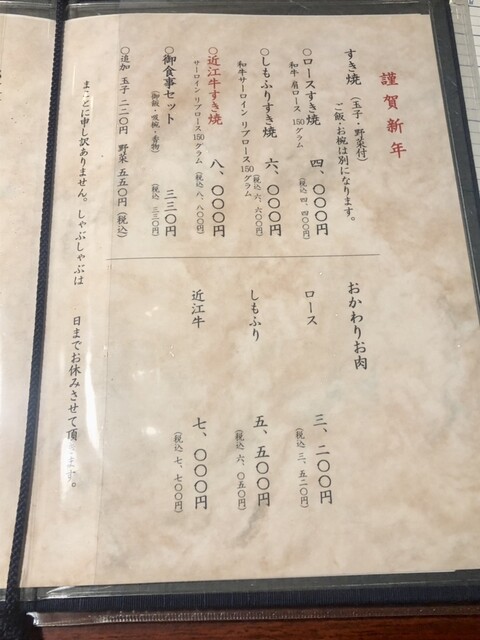 謹賀新年
すき焼（玉子・野菜付）
ご飯・お椀は別になります。
○ロースすき焼 四、〇〇〇円
和牛 肩ロース 150グラム （税込 四、四〇〇円）
○しもふりすき焼 六、〇〇〇円
和牛サーロイン リブロース 150グラム （税込 六、六〇〇円）
○近江牛すき焼 八、〇〇〇円
サーロイン リブロース 150グラム （税込 八、八〇〇円）
○御食事セット 三三〇円
（御飯・吸椀・香物） （税込 三三〇円）
○追加 玉子 二二〇円 野菜 五五〇円（税込）
おかわりお肉
ロース 三、二〇〇円
（税込 三、五二〇円）
しもふり 五、五〇〇円
（税込 六、〇五〇円）
近江牛 七、〇〇〇円
（税込 七、七〇〇円）
まことに申し訳ありません。しゃぶしゃぶは 日までお休みさせて頂きます。